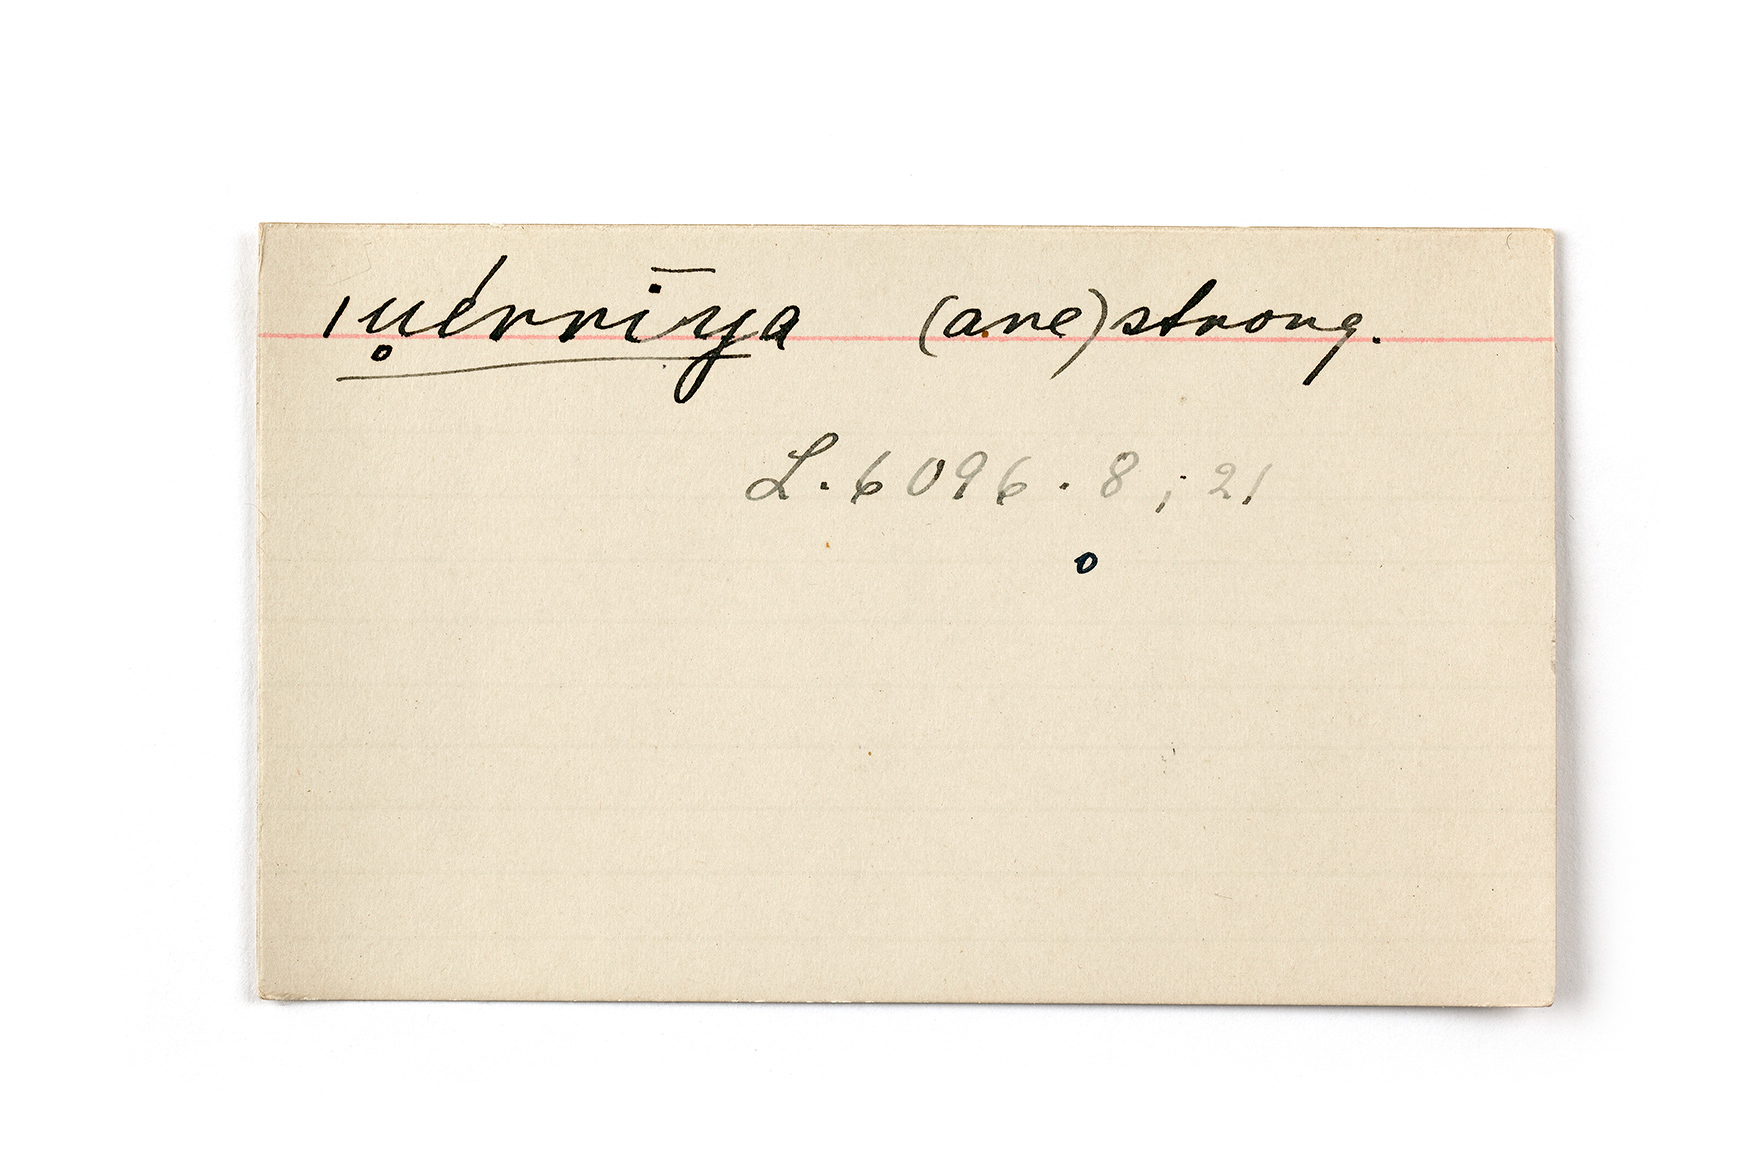 ǀu̥érriīya (are) strong.
L. 6096. 8; 21
o